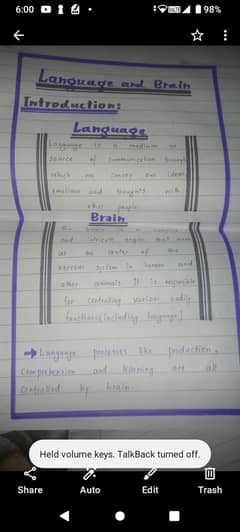 6:00
98%
Language and Brain
Introduction:
Language
Language is a medium or
source of communication through
which we convey our ideas
emotions and thoughts with
other people
Brain
The brain is a complex
and intricate organ that
at the center of the
nervous system in human and
other animals It is responsible
for Controlling various bodily
functions (including language)
→ Language processes like production,
Comprehension and listening are all
Controlled by brain.
Held volume keys. TalkBack turned off.
Share Auto Edit Trash